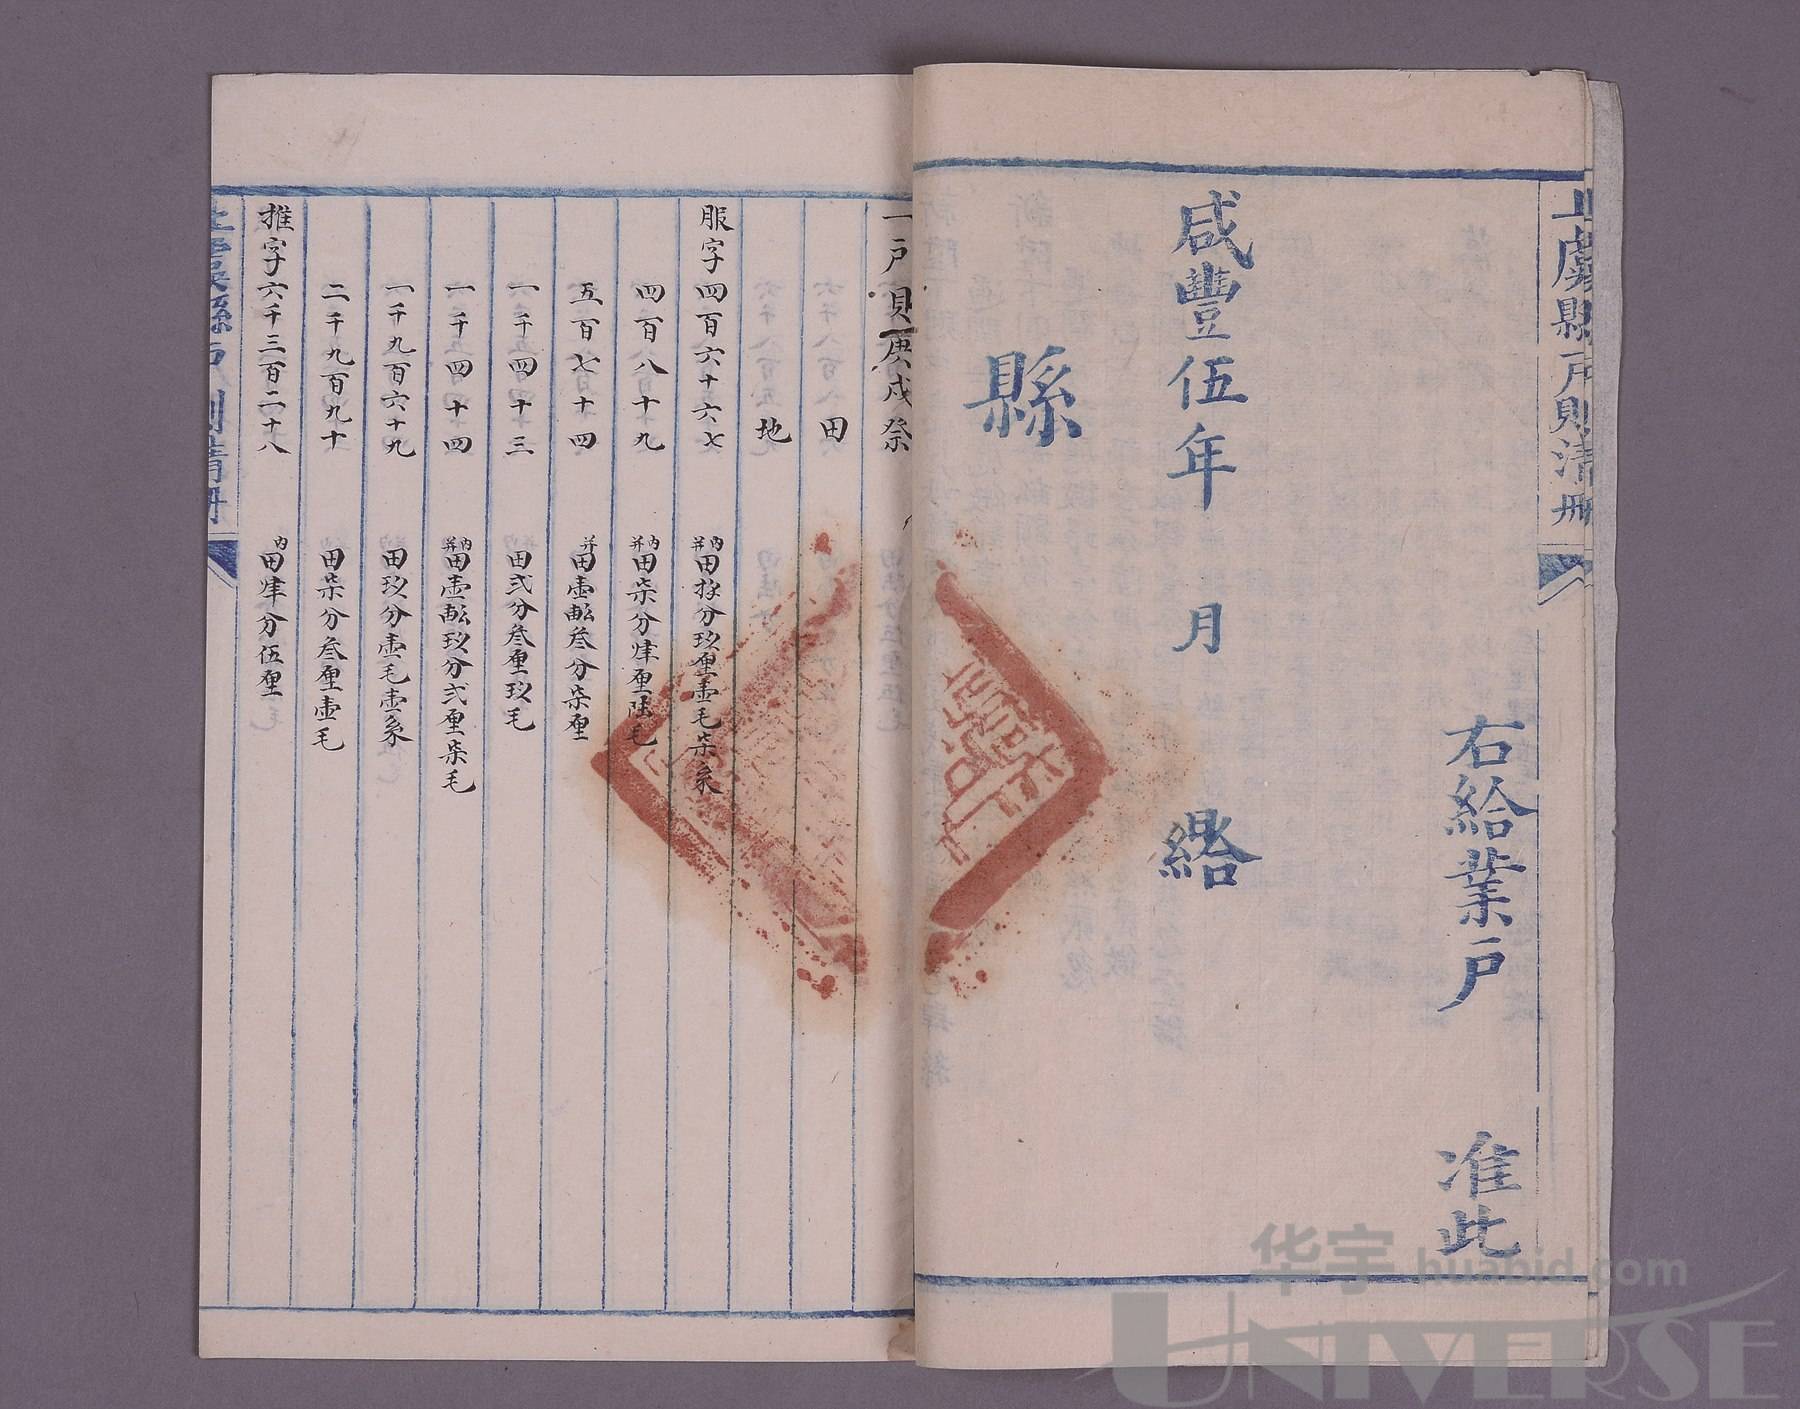 上虞縣戶則清冊
右給業戶 准此
咸豐伍年 月 給
縣
一戶 庚戌祭
田
地
服字四百六十六七 内并田拾分玖厘壹毛柒糸
四百八十九 内并田柒分肆厘陸毛
五百七十四 并田壹畝叁分柒厘
一千四十三 田弍分叁厘玖毛
一千四十四 内并田壹畝玖分弍厘柒毛
一千九百六十九 田玖分壹毛壹糸
二千九百九十 田柒分叁厘壹毛
推字六千三百二十八 内田肆分伍厘
上虞縣戶則清冊
华宇 huabid.com
UNIVERSE